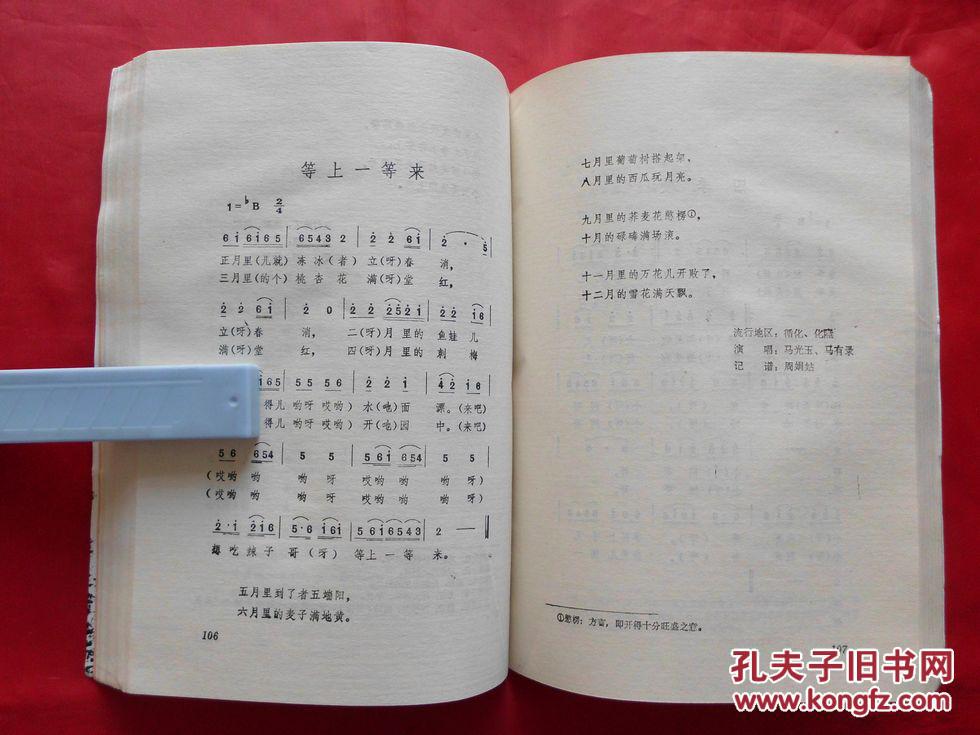 等上一等来
1=♭B 2/4
6 i 6 i 6 5 6 5 4 3 2 2 2 6 i 2 · 5
正月里(儿就) 冻冰(者) 立(呀)春 消,
三月里(的个) 桃杏花 满(呀)堂 红,
2 2 6 i 2 0 2 2 2 5 2 i 2 2 i 6
立(呀)春 消, 二(呀)月里的 鱼蛙儿
满(呀)堂 红, 四(呀)月里的 刺梅
i 6 5 5 5 5 6 2 2 i 4 2 i 6
得儿 哟呀 哎哟) 水(吔)面 漂。(来吧)
得儿 哟呀 哎哟) 开(吔)园 中。(来吧)
5 6 6 5 4 5 5 5 6 i 6 5 4 5 5
(哎哟 哟 哟 呀 哎哟 哟 哟 呀)
(哎哟 哟 哟 呀 哎哟 哟 哟 呀)
2 · i 2 i 6 5 · 6 i 6 i 5 6 i 6 5 4 3 2 —
想吃辣子哥(呀) 等上一等 来。
五月里到了者五端阳,
六月里的麦子满地黄。
106
七月里葡萄树搭起架,
八月里的西瓜玩月亮。
九月里的荞麦花憨楞①,
十月的碌碡满场滚。
十一月里的万花儿开败了,
十二月的雪花满天飘。
流行地区:循化、化隆
演 唱:马光玉、马有录
记 谱:周娟姑
①憨楞:方言,即开得十分旺盛之意。
107
孔夫子旧书网
www.kongfz.com